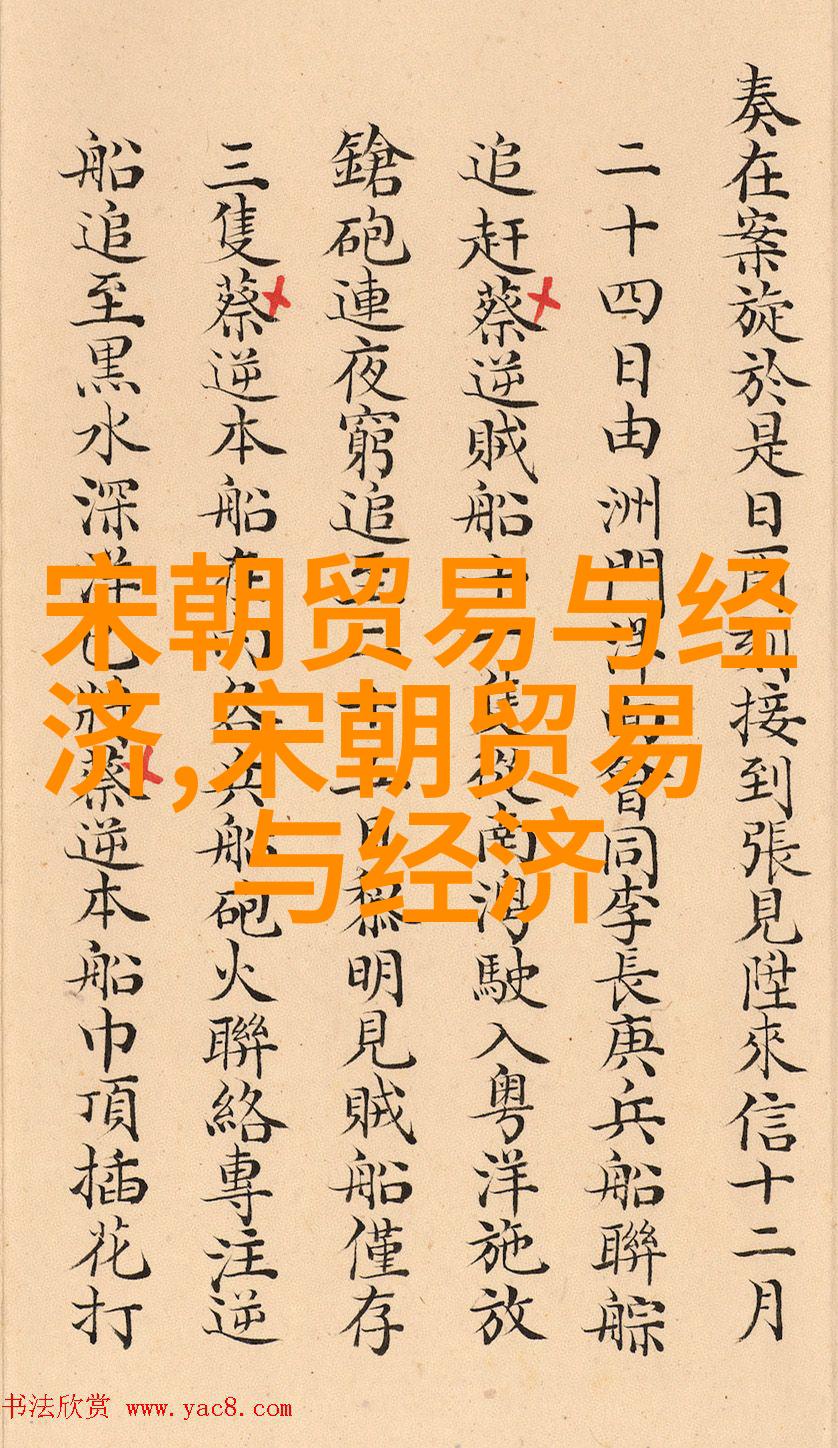 奏在案旋於是日接到張見陞來信十二月
二十四日由洲門會同李長庚兵船聯䑸
追赶蔡逆賊船隻從南駛入粤洋施放
鎗砲連夜窮追至二十五日黎明見賊船僅存
三隻蔡逆本船在內兵船砲火聯絡專注逆
船追至黒水深洋已將蔡逆本船巾頂插花打
宋朝贸易与经
济,宋朝贸易
与经济
书法欣赏 www.yac8.com